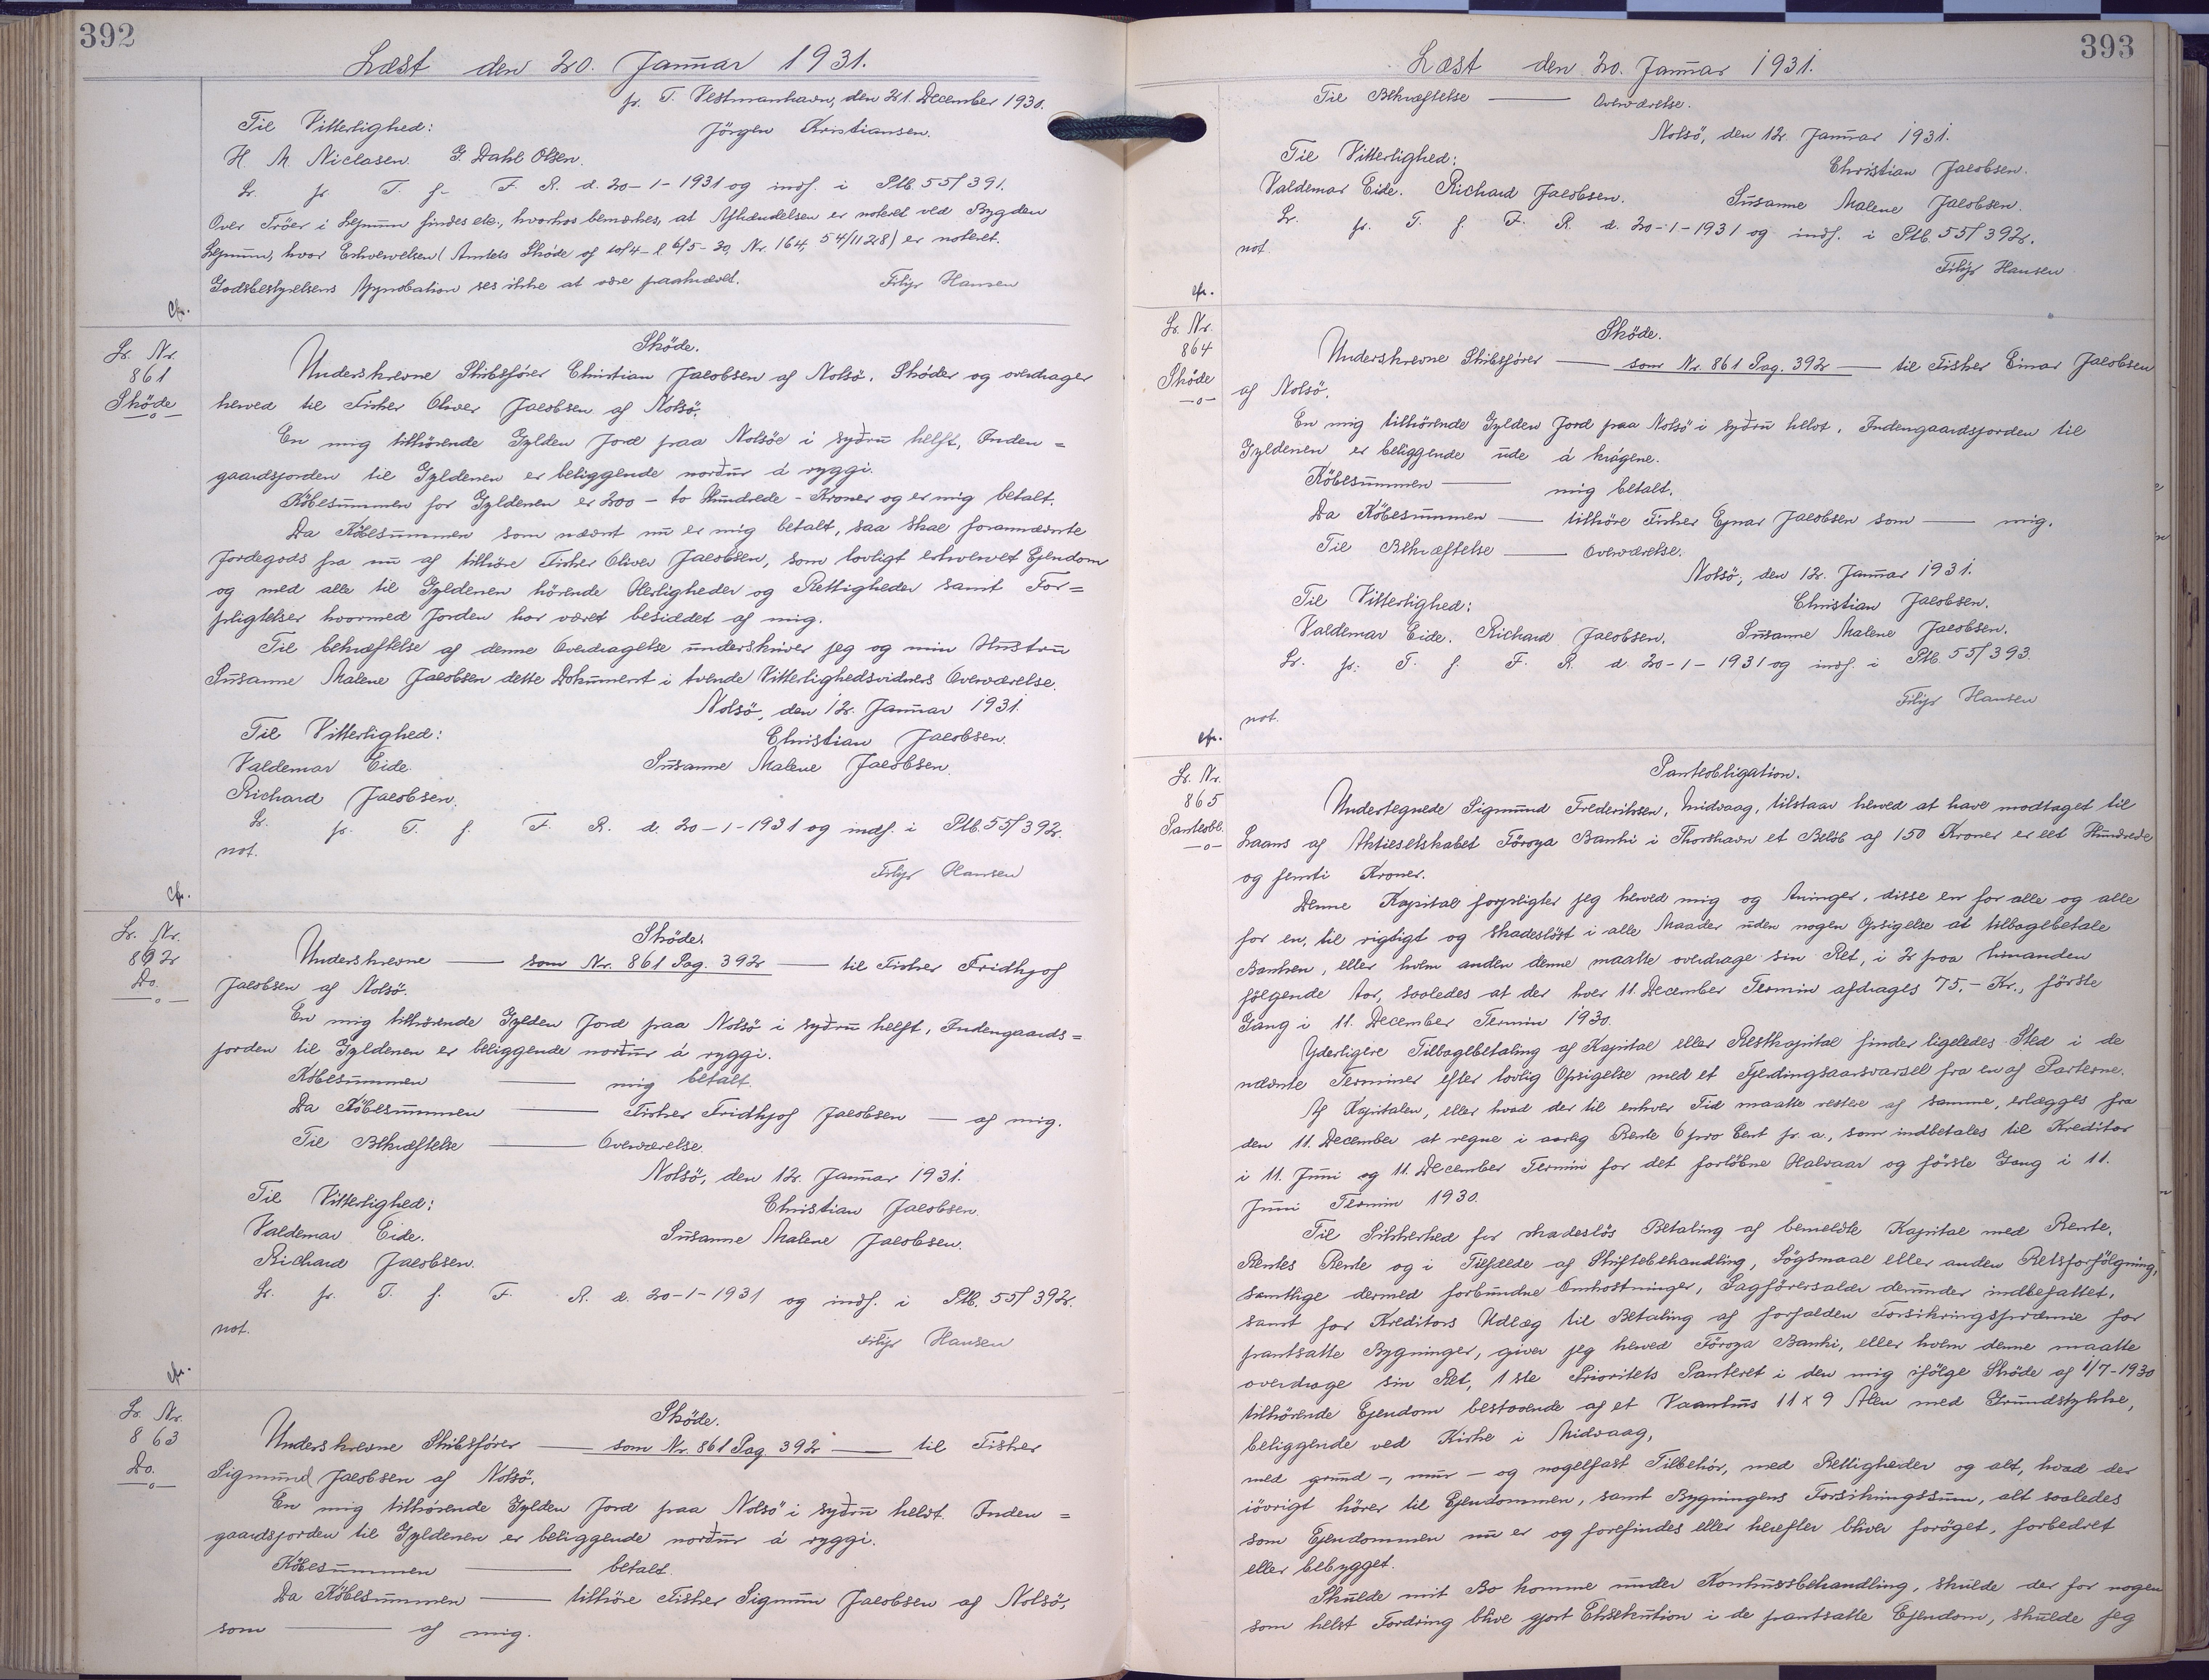 392
Læst den 20. Januar 1931.
pr. T. Vestmanhavn, den 21. December 1930.
Til Vitterlighed:
Jörgen Kristiansen.
H. M. Niclasen. G. Dahl Olsen.
Lr. pr. T. f. F. R. d. 20-1-1931 og indf. i Ptb. 55/391.
Over Tröer i Lejnum findes etc., hvorhos bemærkes, at Afhændelsen er noteret ved Bygden
Lejnum, hvor Erhvervelsen (Amtets Skøde af 10/4 - l 6/5-30, Nr. 164, 54/1128) er noteret.
Godsbestyrelsens Approbation ses ikke at være paakrævet.
Filip Hansen
cfr.
Lr. Nr.
861
Sköde
-o-
Sköde.
Underskrevne Skibsfører Christian Jacobsen af Nolsö, Sköder og overdrager
herved til Fisker Oliver Jacobsen af Nolsö.
En mig tilhörende Gylden Jord paa Nolsöe i syðru helft, Inden=
gaardsjorden til Gyldenen er beliggende norður á ryggi.
Köbesummen for Gyldenen er 200 - to Hundrede - Kroner og er mig betalt.
Da Köbesummen som nævnt nu er mig betalt, saa skal forannævnte
Jordegods fra nu af tilhöre Fisker Oliver Jacobsen, som lovligt erhvervet Ejendom
og med alle til Gyldenen hörende Herligheder og Rettigheder samt For=
pligtelser hvormed Jorden har været besiddet af mig.
Til bekræftelse af denne Overdragelse underskriver jeg og min Hustru
Susanne Malene Jacobsen dette Dokument i tvende Vitterlighedsvidners Overværelse.
Nolsö, den 12. Januar 1931.
Til Vitterlighed:
Christian Jacobsen.
Valdemar Eide.
Susanne Malene Jacobsen.
Richard Jacobsen.
Lr. pr. T. f. F. R. d. 20-1-1931 og indf. i Ptb. 55/392.
not.
Filip Hansen
cfr.
Lr. Nr.
862
Do.
-o-
Sköde.
Underskrevne — som Nr. 861 Pag. 392 — til Fisker Fridhjof
Jacobsen af Nolsö.
En mig tilhörende Gylden Jord paa Nolsö i syðru helft, Indengaards=
jorden til Gyldenen er beliggende norður á ryggi.
Köbesummen — mig betalt.
Da Köbesummen — Fisker Fridhjof Jacobsen — af mig.
Til Bekræftelse — Overværelse.
Nolsö, den 12. Januar 1931.
Til Vitterlighed:
Christian Jacobsen.
Valdemar Eide.
Susanne Malene Jacobsen.
Richard Jacobsen.
Lr. pr. T. f. F. R. d. 20-1-1931 og indf. i Ptb. 55/392.
not.
Filip Hansen
cfr.
Lr. Nr.
863
Do.
-o-
Sköde.
Underskrevne Skibsfører — som Nr. 861 Pag. 392 — til Fisker
Sigmund Jacobsen af Nolsö.
En mig tilhörende Gylden Jord paa Nolsö i syðru helvt. Inden=
gaardsjorden til Gyldenen er beliggende norður á ryggi.
Köbesummen — betalt.
Da Köbesummen — tilhöre Fisker Sigmun Jacobsen af Nolsö,
som — af mig.
393
Læst den 20. Januar 1931.
Til Bekræftelse — Overværelse.
Nolsö, den 12. Januar 1931.
Til Vitterlighed:
Christian Jacobsen.
Valdemar Eide. Richard Jacobsen.
Susanne Malene Jacobsen.
Lr. pr. T. f. F. R. d. 20-1-1931 og indf. i Ptb. 55/392.
not.
Filip Hansen
cfr.
Lr. Nr.
864
Sköde
-o-
Sköde.
Underskrevne Skibsfører — som Nr. 861 Pag. 392 — til Fisker Einar Jacobsen
af Nolsö.
En mig tilhörende Gylden Jord paa Nolsö i syðru helvt. Indengaardsjorden til
Gyldenen er beliggende ude á krágene.
Köbesummen — mig betalt.
Da Köbesummen — tilhöre Fisker Ejnar Jacobsen som — mig.
Til Bekræftelse — Overværelse.
Nolsö, den 12. Januar 1931.
Til Vitterlighed:
Christian Jacobsen.
Valdemar Eide. Richard Jacobsen.
Susanne Malene Jacobsen.
Lr. pr. T. f. F. R. d. 20-1-1931 og indf. i Ptb. 55/393.
Filip Hansen
not.
cfr.
Lr. Nr.
865
Panteobl.
-o-
Panteobligation.
Undertegnede Sigmund Frederiksen, Midvaag, tilstaar herved at have modtaget til
Laans af Aktieselskabet Föroya Banki i Thorshavn et Belöb af 150 Kroner er eet Hundrede
og femti Kroner.
Denne Kapital forpligter jeg herved mig og Arvinger, disse en for alle og alle
for en, til rigtigt og skadeslöst i alle Maader uden nogen Opsigelse at tilbagebetale
Banken, eller hvem anden denne maatte overdrage sin Ret, i 2 paa hinanden
fölgende Aar, saaledes at der hver 11. December Termin afdrages 75,- Kr., förste
Gang i 11. December Termin 1930.
Yderligere Tilbagebetaling af Kapital eller Restkapital finder ligeledes Sted i de
nævnte Terminer efter lovlig Opsigelse med et Fjerdingsaarsvarsel fra en af Parterne.
Af Kapitalen, eller hvad der til enhver Tid maatte restere af samme, erlægges fra
den 11. December at regne i aarlig Rente 6 pro Cent p. a., som indbetales til Kreditor
i 11. Juni og 11. December Termin for det forlöbne Halvaar og förste Gang i 11.
Juni Termin 1930.
Til Sikkerhed for skadeslös Betaling af bemeldte Kapital med Rente,
Rentes Rente og i Tilfælde af Skiftebehandling, Sögsmaal eller anden Retsforfölgning,
samtlige dermed forbundne Omkostninger, Sagförersalær derunder indbefattet,
samt for Kreditors Udlæg til Betaling af forfalden Forsikringspræmie for
pantsatte Bygninger, giver jeg herved Föroya Banki, eller hvem denne maatte
overdrage sin Ret, 1ste Prioritets Panteret i den mig ifölge Sköde af 1/7-1930
tilhörende Ejendom bestaaende af et Vaanhus 11 x 9 Alen med Grundstykke,
beliggende ved Kirke i Midvaag,
med grund-, mur- og nagelfast Tilbehör, med Rettigheder og alt, hvad der
iövrigt hörer til Ejendommen, samt Bygningens Forsikringssum, alt saaledes
som Ejendommen nu er og forefindes eller herefter bliver foröget, forbedret
eller bebygget.
Skulde mit Bo komme under Konkursbehandling, skulde der for nogen
som helst Fordring blive gjort Eksekution i de pantsatte Ejendom, skulde jeg